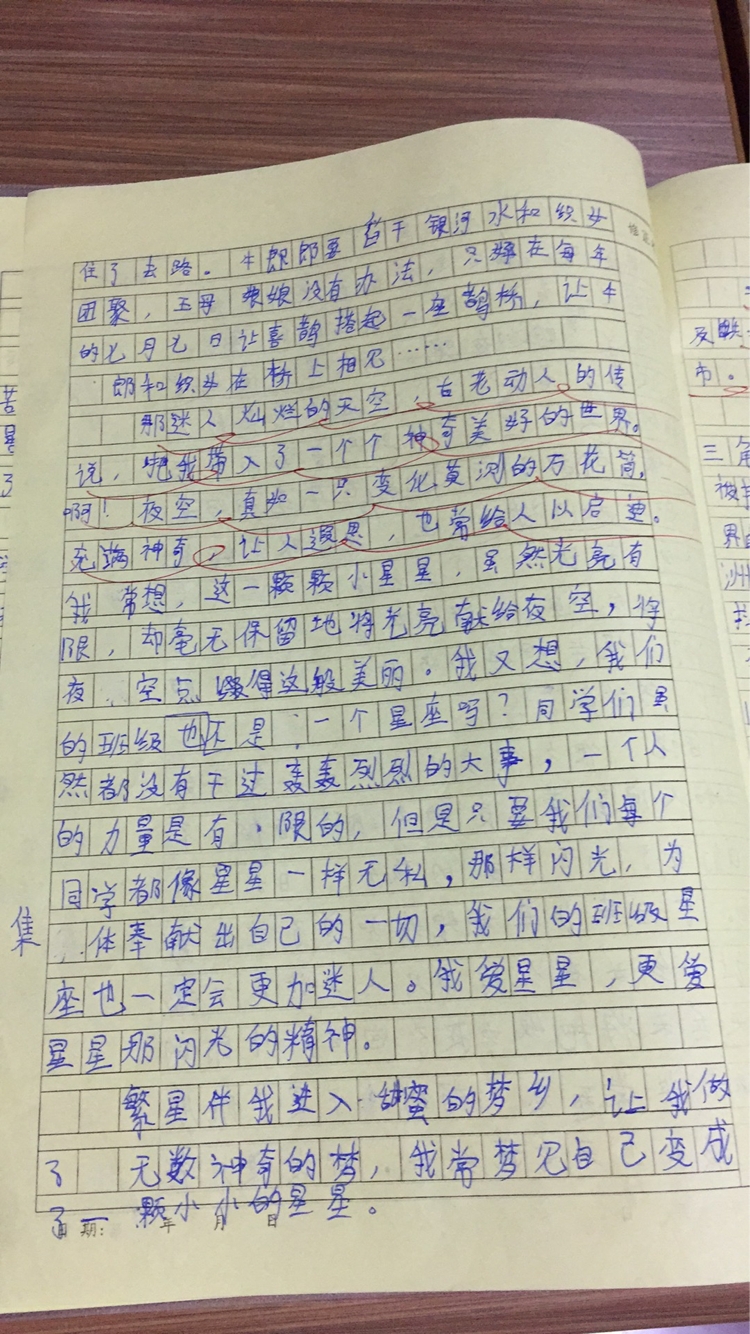 住了去路。牛郎郎要舀干银河水和织女
团聚,王母娘娘没有办法,只好在每年
的七月七日让喜鹊搭起一座鹊桥,让牛
郎和织女在桥上相见……
那迷人灿烂的天空,古老动人的传
说,把我带入了一个个神奇美好的世界。
啊!夜空,真如一只变化莫测的万花筒,
充满神奇,让人遐思,也常给人以启迪。
我常想,这一颗颗小星星,虽然光亮有
限,却毫无保留地将光亮献给夜空,将
夜空点缀得这般美丽。我又想,我们
的班级也还是,一个星座吗?同学们虽
然都没有干过轰轰烈烈的大事,一个人
的力量是有限的,但是只要我们每个
同学都像星星一样无私,那样闪光,为
集体奉献出自己的一切,我们的班级星
座也一定会更加迷人。我爱星星,更爱
星星那闪光的精神。
繁星伴我进入甜蜜的梦乡,让我做
了无数神奇的梦,我常梦见自己变成
了一颗小小的星星。
期: 年 月 日
及
市。
三角
被
界
洲
苦
星